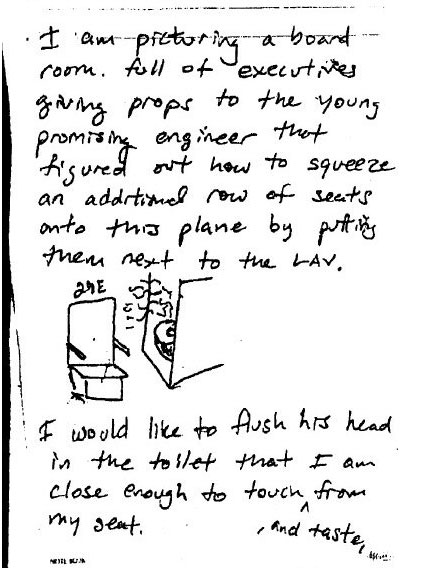 I am picturing a board
room. full of executives
giving props to the young
promising engineer that
figured out how to squeeze
an additional row of seats
onto this plane by putting
them next to the LAV.
29E
I would like to flush his head
in the toilet that I am
close enough to touch ^ from
my seat. , and taste,